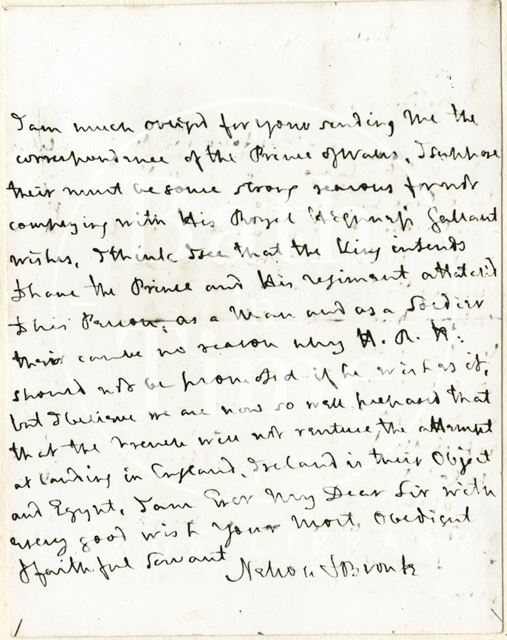 I am much oblig'd for your sending me the
correspondence of the Prince of Wales, I suppose
their must be some strong reasons for not
complying with His Royal Highness's Gallant
wishes, I think I see that the King intends
to have the Prince and His regiment attatch'd
to his Person, as a Man and as a Soldier
their can be no reason why H. R. H:
should not be promoted if he wishes it,
but I believe we are now so well prepared that
that the French will not venture the attempt
at landing in England, Ireland is their Object
and Egypt, I am Ever My Dear Sir with
every good wish Your Most Obedient
& faithful Servant
Nelson & Bronte
Bath
in
Time
LIBRARY